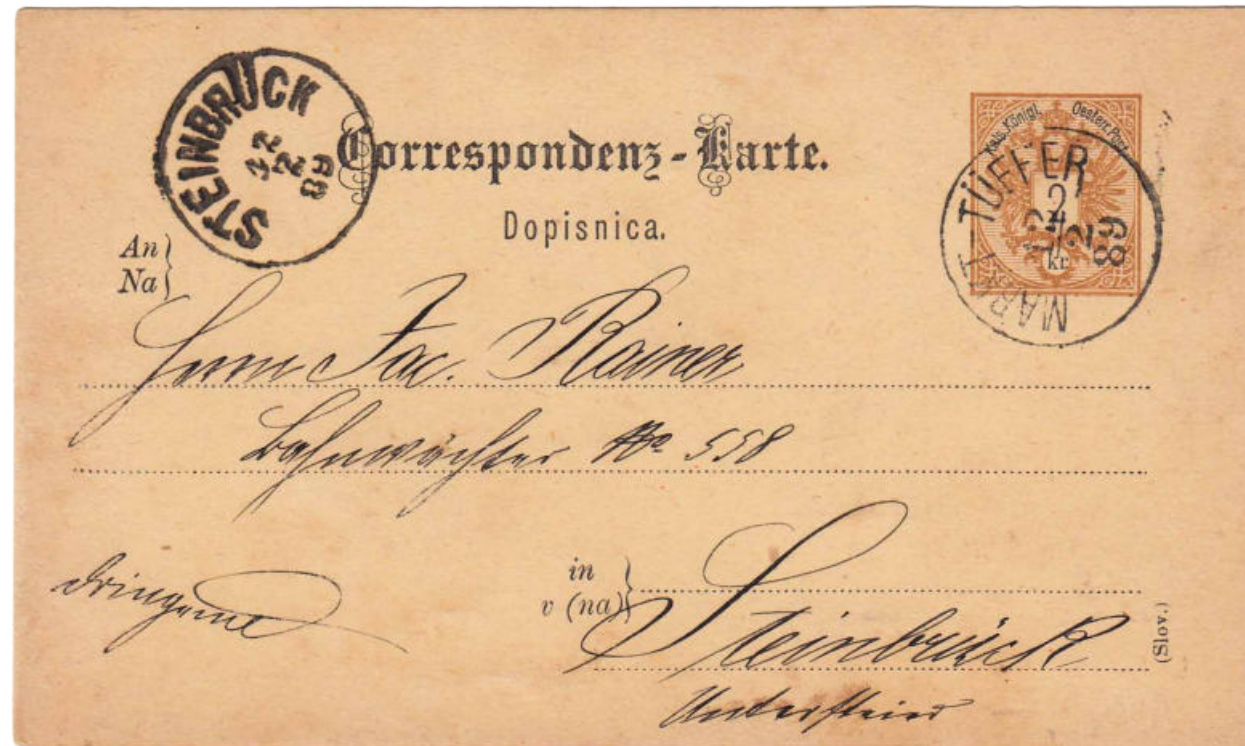 STEINBRÜCK
22
2
89
Correspondenz-Karte.
Dopisnica.
Kais. Königl. Oesterr. Post
2
kr.
MARKT-TÜFFER
2
89
An
Na
Herrn Jac. Rainer
Bahnwächter No 558
dringend
in
v (na)
Steinbrück
Untersteier
(Slov.)